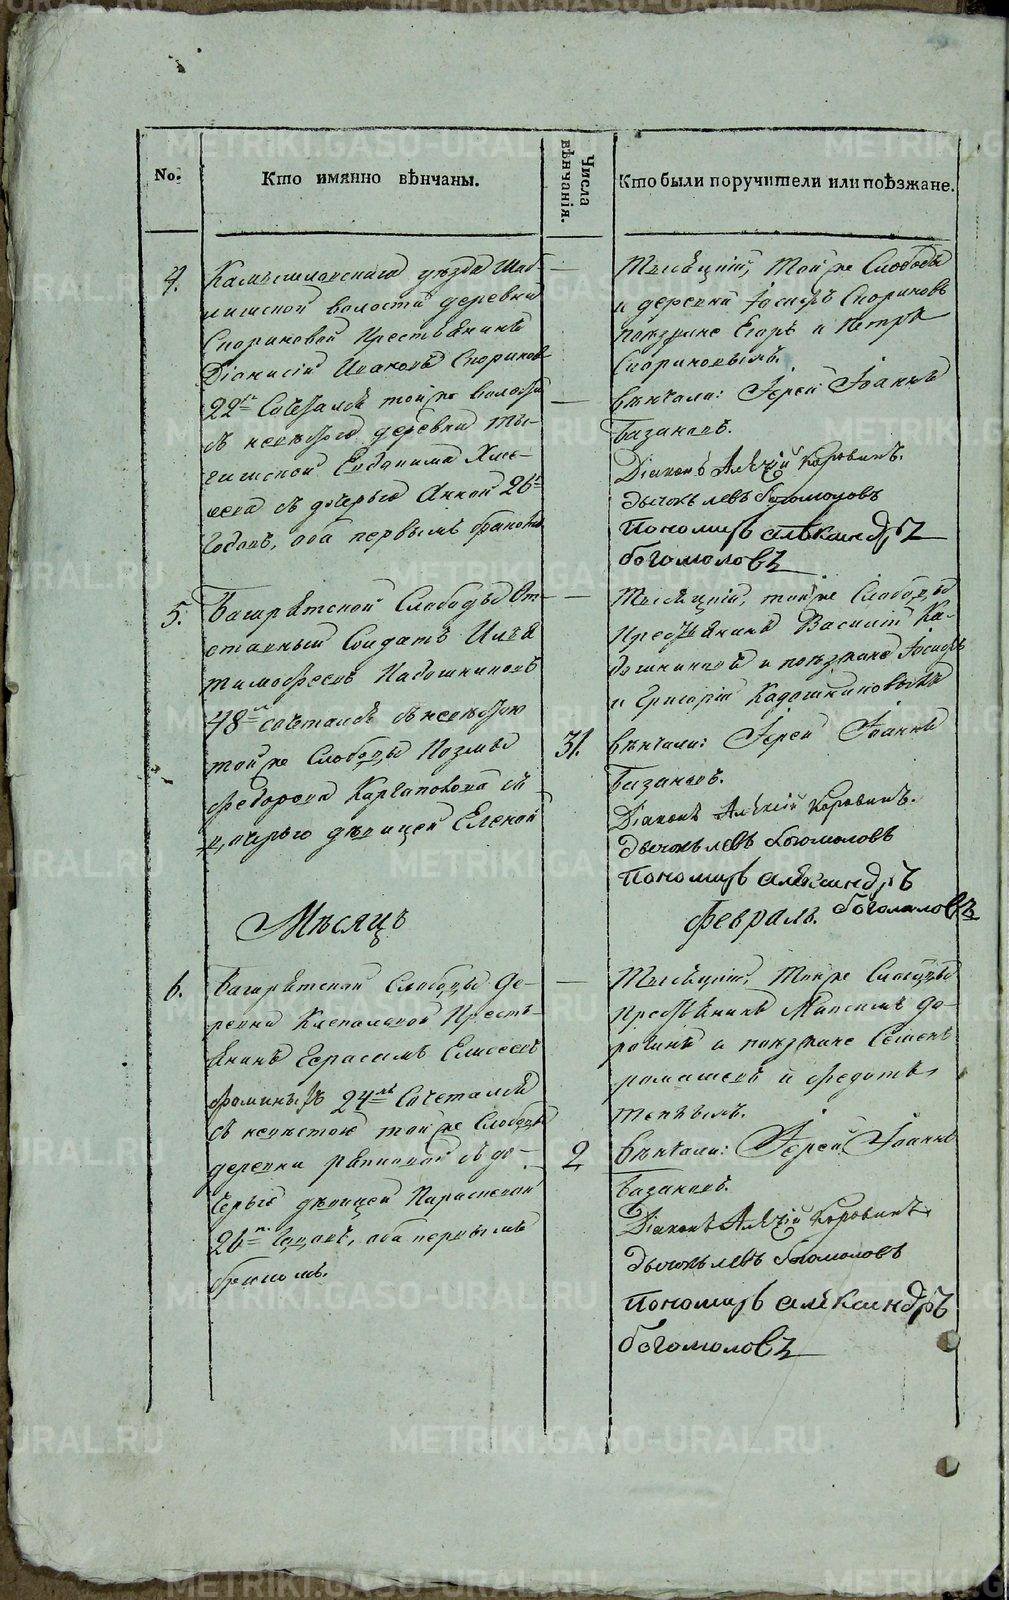 No.
Кто имянно вѣнчаны.
Числа вѣнчанія.
Кто были поручители или поѣзжане.
4.
Камышловскаго уѣзда
волости деревни
крестьянинъ
Діонисій Ивановъ
22 сочетался той же волости
съ невѣстою деревни
Евдокима
съ дочерью Анной 26
годовъ, оба первымъ бракомъ
Тысяцкій, той же Слободы
и деревни Іосифъ
поѣзжане Егоръ и Петръ
вѣнчали: Іерей Іоаннъ
Базановъ.
Діаконъ Алексій Коровинъ.
Дьячокъ левъ богомоловъ
Пономарь александръ
богомоловъ
5.
Багарятской Слободы От-
ставный Солдатъ Илья
тимофеевъ Кадошниковъ
48 сочетался съ невѣстою
той же Слободы Козмы
федорова съ
дочерью дѣвицей Еленой
31.
Тысяцкій, той же Слободы
Крестьянинъ Василій Ка-
дошниковъ и поѣзжане Іосифъ
и Григорій Кадошниковы
вѣнчали: Іерей Іоаннъ
Базановъ.
Діаконъ Алексій Коровинъ.
Дьячокъ левъ богомоловъ
Пономарь александръ
богомоловъ
Мѣсяцъ
февраль.
6.
Багарятской Слободы де-
ревни Кресть-
янинъ Герасимъ Елисеевъ
24 сочетался
съ невѣстою той же Слободы
деревни съ до-
черью дѣвицей Параскевой
26 годовъ, оба первымъ
бракомъ.
2
Тысяцкій, той же Слободы
крестьянинъ Максимъ До-
и поѣзжане Семенъ
и федотъ
вѣнчали: Іерей Іоаннъ
Базановъ.
Діаконъ Алексій Коровинъ
Дьячокъ левъ богомоловъ
Пономарь александръ
богомоловъ
METRIKI.GASO-URAL.RU